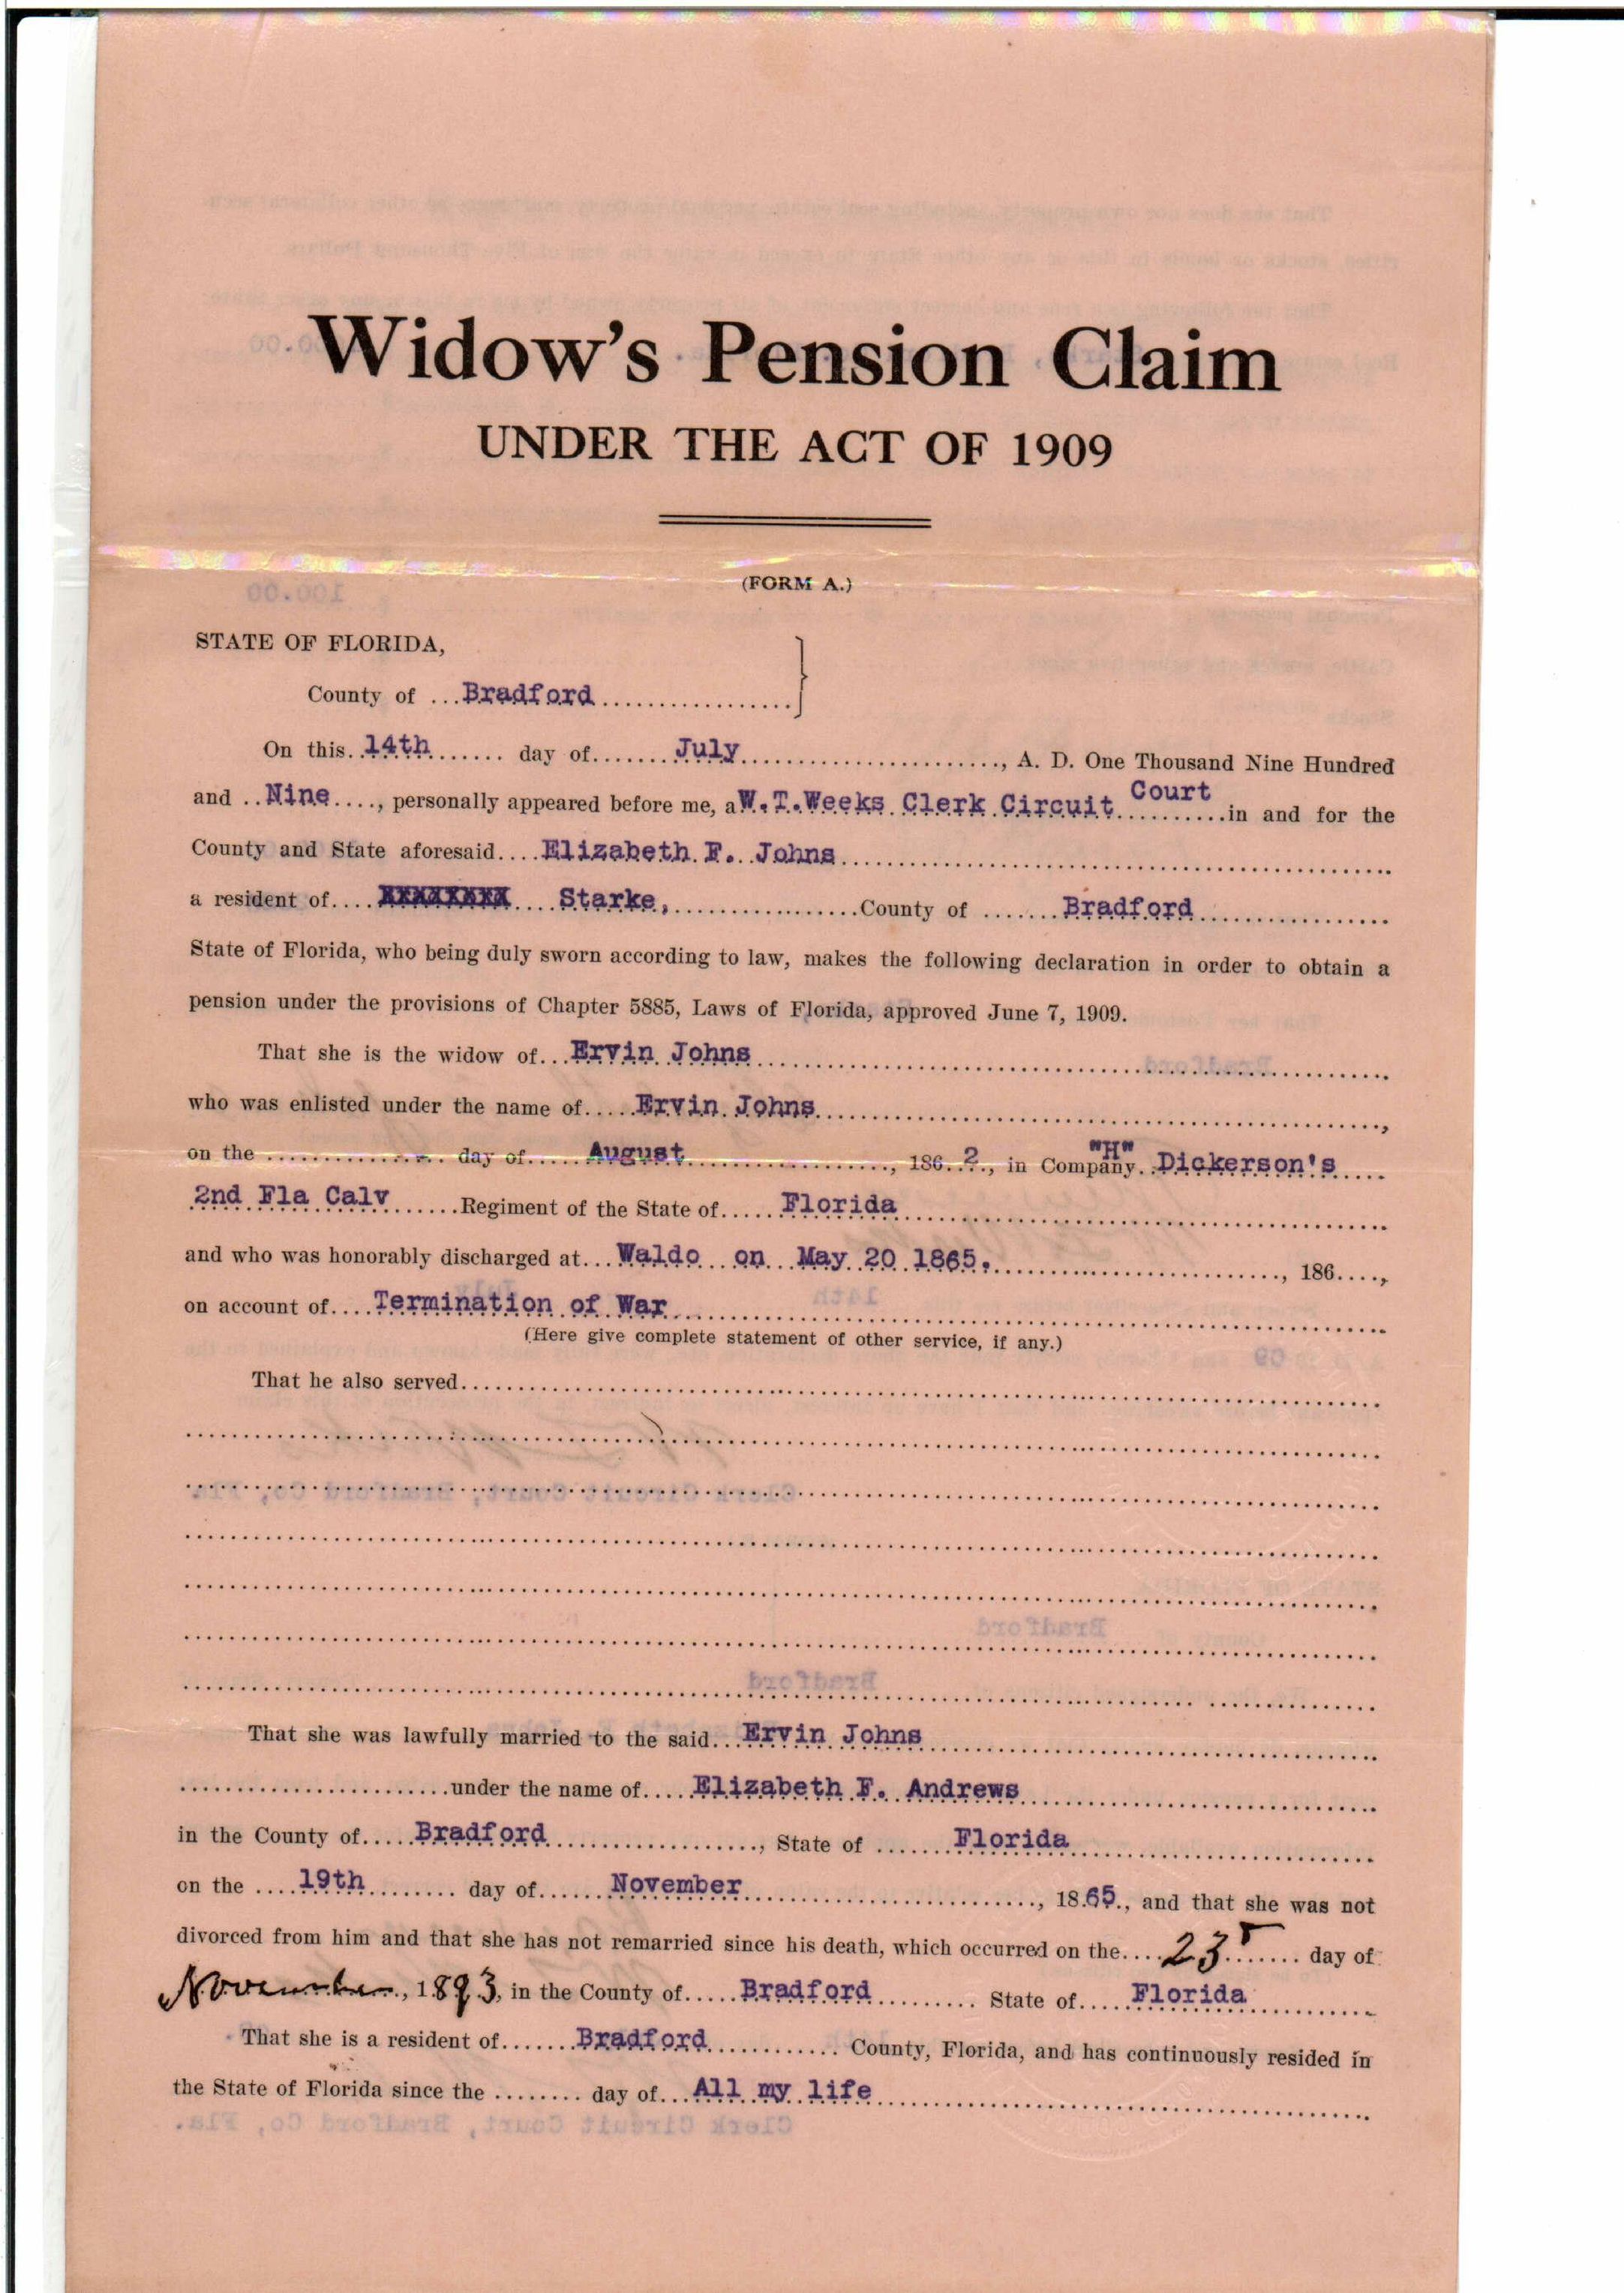 Widow's Pension Claim
UNDER THE ACT OF 1909
(FORM A.)
STATE OF FLORIDA,
County of ...Bradford..................
On this..14th........ day of........July........................., A. D. One Thousand Nine Hundred
and ..Nine...., personally appeared before me, a W.T.Weeks Clerk Circuit Court..........in and for the
County and State aforesaid....Elizabeth F. Johns..................................................
a resident of....XXXXXXXX....Starke,..................County of .......Bradford..................
State of Florida, who being duly sworn according to law, makes the following declaration in order to obtain a
pension under the provisions of Chapter 5885, Laws of Florida, approved June 7, 1909.
That she is the widow of...Ervin Johns..................................................
who was enlisted under the name of.....Ervin Johns..................................................,
on the .................. day of......August...................., 186..2.., in Company "H" Dickerson's.....
2nd Fla Calv.......Regiment of the State of......Florida..................................................
and who was honorably discharged at...Waldo...on...May 20 1865..............................., 186....,
on account of....Termination of War..................................................
(Here give complete statement of other service, if any.)
That he also served..................................................
That she was lawfully married to the said...Ervin Johns........................................
........................under the name of.....Elizabeth F. Andrews..............................
in the County of.....Bradford...................., State of .......Florida..............................
on the ....19th......... day of.......November.............................., 18.65., and that she was not
divorced from him and that she has not remarried since his death, which occurred on the....23....... day of
November.., 1893, in the County of.....Bradford.......... State of.....Florida..............
That she is a resident of.......Bradford............ County, Florida, and has continuously resided in
the State of Florida since the ........ day of...All my life..................................................
Clerk Circuit Court, Bradford Co, Fla.